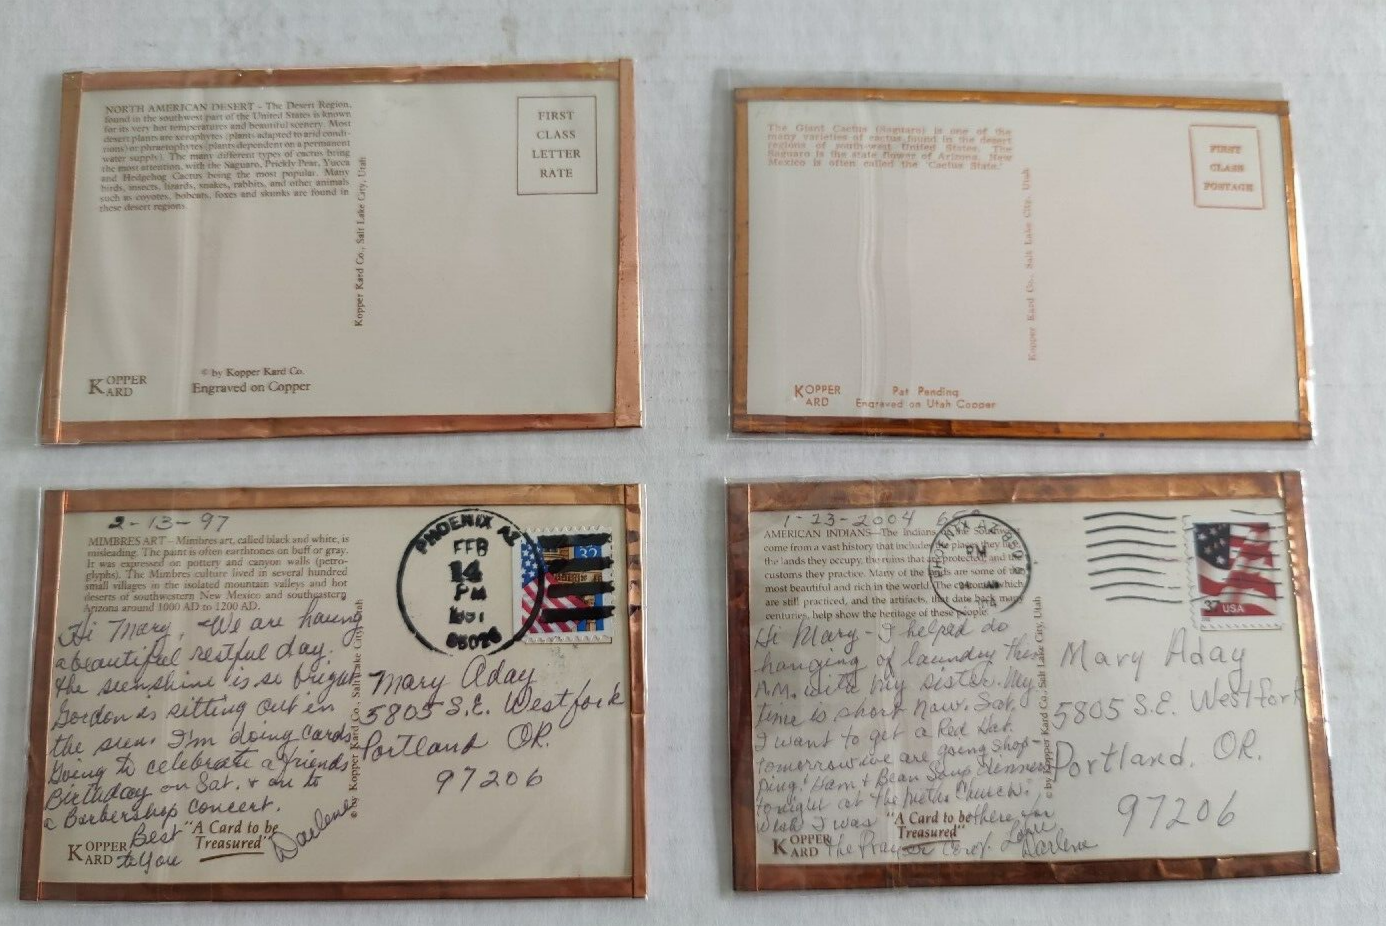 NORTH AMERICAN DESERT - The Desert Region,
found in the southwest part of the United States is known
for its very hot temperatures and beautiful scenery. Most
desert plants are xerophytes (plants adapted to arid condi-
tions) or phraetophytes (plants dependent on a permanent
water supply). The many different types of cactus being
the most attention, with the Saguaro, Prickly Pear, Yucca
and Hedgehog Cactus being the most popular. Many
birds, insects, lizards, snakes, rabbits, and other animals
such as coyotes, bobcats, foxes and skunks are found in
these desert regions.
FIRST
CLASS
LETTER
RATE
Kopper Kard Co., Salt Lake City, Utah
KOPPER
KARD
© by Kopper Kard Co.
Engraved on Copper
The Giant Cactus (Saguaro) is one of the
many varieties of cactus found in the desert
regions of south-west United States. The
Saguaro is the state flower of Arizona. New
Mexico is often called the 'Cactus State.'
FIRST
CLASS
POSTAGE
Kopper Kard Co., Salt Lake City, Utah
KOPPER
KARD
Pat Pending
Engraved on Utah Copper
2-13-97
MIMBRES ART - Mimbres art, called black and white, is
misleading. The paint is often earthtones on buff or gray.
It was expressed on pottery and canyon walls (petro-
glyphs). The Mimbres culture lived in several hundred
small villages in the isolated mountain valleys and hot
deserts of southwestern New Mexico and southeastern
Arizona around 1000 AD to 1200 AD.
Hi Mary, We are having
a beautiful restful day.
the sunshine is so bright
Gordon is sitting out in
the sun. I'm doing cards
Going to celebrate a friends
Birthday on Sat. & on to
a Barbershop Concert.
Best
to you
Darlene
PHOENIX AZ
FEB
14
PM
1997
85026
32
Mary Aday
5805 S.E. Westfork
Portland OR.
97206
© by Kopper Kard Co., Salt Lake City, Utah
KOPPER
KARD
"A Card to be
Treasured"
1-23-2004
AMERICAN INDIANS—The Indians
come from a vast history that includes the places they live,
the lands they occupy, the ruins that are protected, and the
customs they practice. Many of the lands are some of the
most beautiful and rich in the world. The customs, which
are still practiced, and the artifacts, that date back many
centuries, help show the heritage of these people.
Hi Mary - I helped do
hanging of laundry this
A.M. with my sister. My
time is short now. Sat.
I want to get a Red Hat.
tomorrow we are going shop-
ping! Ham & Bean Soup dinner
tonight at the Meth. Church.
Wish I was there for
the Prayer Conf. Love
Darlene
PHOENIX AZ 852
PM
37 USA
Mary Aday
5805 S.E. Westfork
Portland, OR.
97206
© by Kopper Kard Co., Salt Lake City, Utah
KOPPER
KARD
"A Card to be
Treasured"